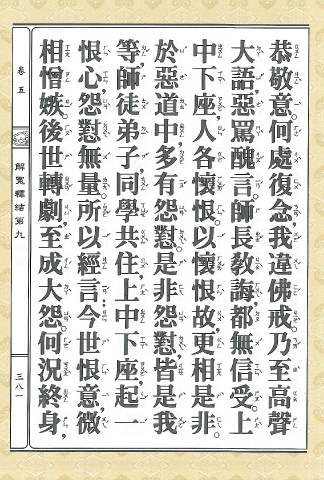 恭敬意。何處復念,我違佛戒。乃至高聲
大語,惡罵醜言。師長教誨,都無信受。上
中下座,人各懷恨。以懷恨故,更相是非。
於惡道中,多有怨懟。是非怨懟,皆是我
等,師徒弟子,同學共住,上中下座,起一
恨心,怨懟無量。所以經言:今世恨意,微
相憎嫉,後世轉劇,至成大怨。何況終身,
卷五
解冤釋結第九
三八一